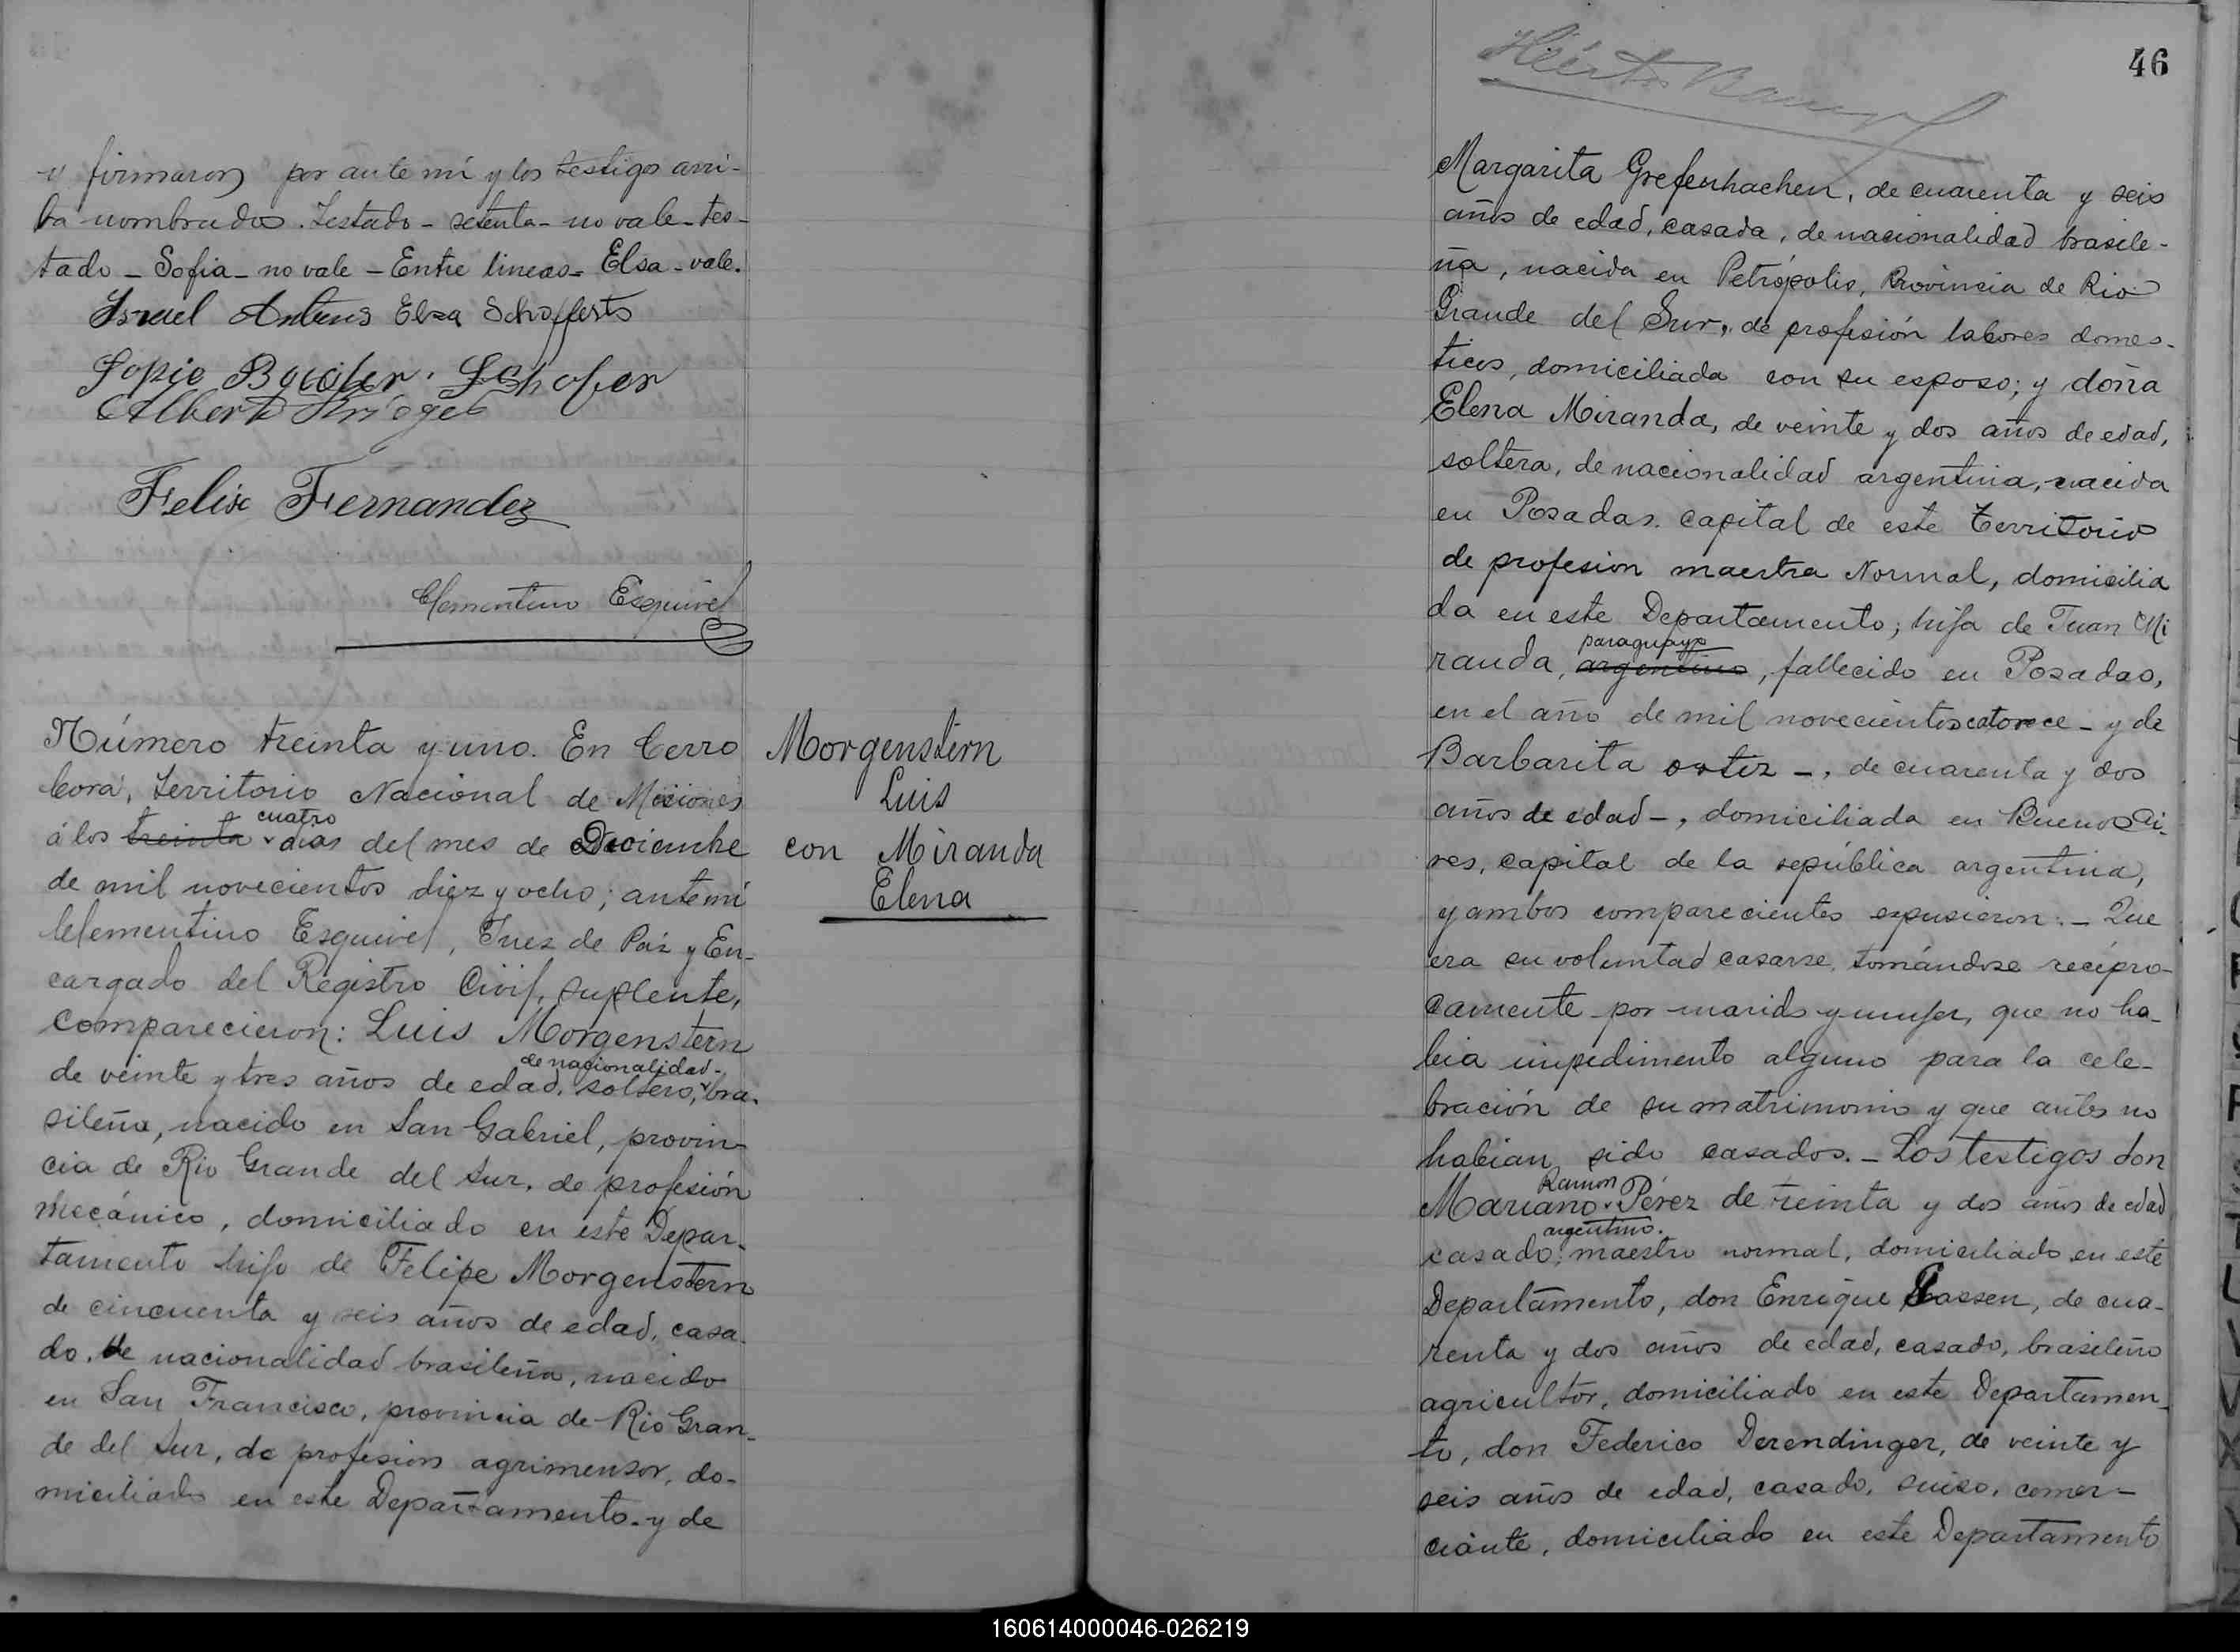 y firmaron por ante mi y los testigos arri-
ba nombrados. Testado - setenta - no vale - tes-
tado - Sofia - no vale - Entre lineas - Elsa - vale.
Israel Elsa
Albert
Felix Fernandez
Clementino Esquivel
Número treinta y uno. En Cerro
Corá, Territorio Nacional de Misiones
cuatro
á los treinta dias del mes de Diciembre
de mil novecientos diez y ocho; ante mi
Clementino Esquivel, Juez de Paz y En-
cargado del Registro Civil, suplente,
comparecieron: Luis Morgenstern
de nacionalidad-
de veinte y tres años de edad, soltero, bra-
sileña, nacido en San Gabriel, provin-
cia de Rio Grande del Sur, de profesión
mecánico, domiciliado en este Depar-
tamento hijo de Felipe Morgenstern
de cincuenta y seis años de edad, casa-
do, de nacionalidad brasileña, nacido
en San Francisco, provincia de Rio Gran-
de del Sur, de profesion agrimensor, do-
miciliado en este Departamento - y de
Morgenstern
Luis
con Miranda
Elena
46
Margarita Grefenhachen, de cuarenta y seis
años de edad, casada, de nacionalidad brasile-
ña, nacida en Petrópolis, Provincia de Rio
Grande del Sur, de profesión labores domes-
ticos, domiciliada con su esposo; y doña
Elena Miranda, de veinte y dos años de edad,
soltera, de nacionalidad argentina, nacida
en Posadas capital de este territorio
de profesion maestra Normal, domicilia
da en este Departamento; hija de Juan Mi
paraguayo
randa, argentino, fallecido en Posadas,
en el año de mil novecientos catorece - y de
Barbarita ortiz -, de cuarenta y dos
años de edad -, domiciliada en Buenos Ai-
res, capital de la república argentina,
y ambos comparecientes expusieron: - Que
era su voluntad casarse, tomándose recípro-
camente por marido y mujer, que no ha-
bia impedimento alguno para la cele-
bración de su matrimonio y que antes no
habian sido casados. - Los testigos don
Ramon
Mariano Pérez de treinta y dos años de edad
argentino.
casado, maestro normal, domiciliado en este
Departamento, don Enrique de cua-
renta y dos años de edad, casado, brasileño
agricultor, domiciliado en este Departamen-
to, don Federico Derendinger, de veinte y
seis años de edad, casado, suizo, comer-
ciante, domiciliado en este Departamento
160614000046-026219